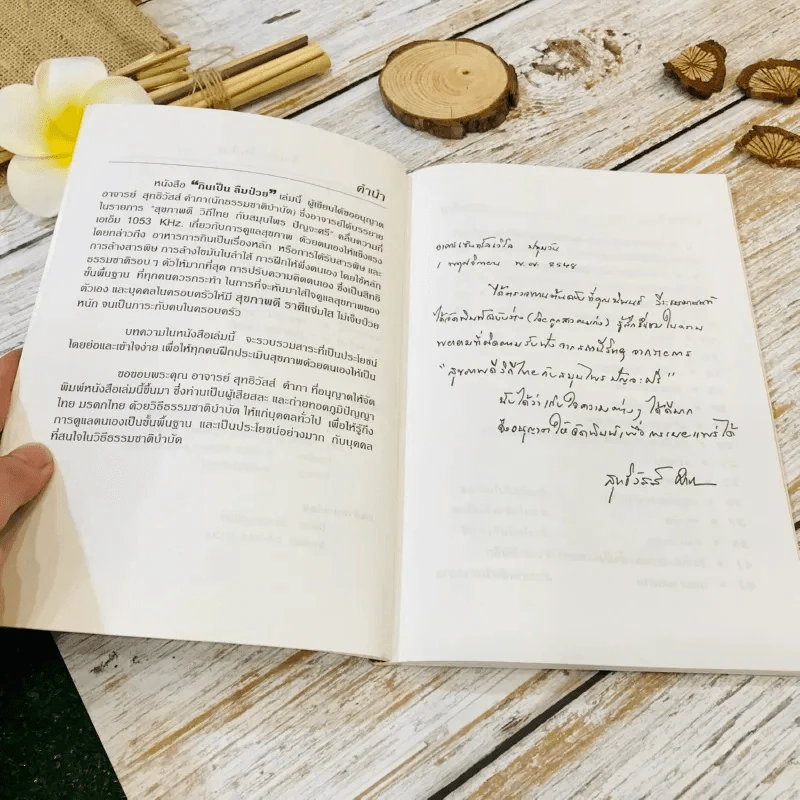 คำนำ
หนังสือ "กินเป็น ลืมป่วย" เล่มนี้ ผู้เขียนได้ขออนุญาต
อาจารย์ สุทธิวัสส์ คำภา(นักธรรมชาติบำบัด) ซึ่งอาจารย์ได้บรรยาย
ในรายการ "สุขภาพดี วิถีไทย กับสมุนไพร ปัญจะศรี" คลื่นความถี่
เอเอ็ม 1053 KHz. เกี่ยวกับการดูแลสุขภาพ ด้วยตนเองให้แข็งแรง
โดยกล่าวถึง อาหารการกินเป็นเรื่องหลัก หรือการได้รับสารพิษ และ
การล้างสารพิษ การล้างไขมันในลำไส้ การฝึกให้พึ่งตนเอง โดยใช้หลัก
ธรรมชาติรอบ ๆ ตัวให้มากที่สุด การปรับความคิดตนเอง ซึ่งเป็นสิทธิ
ขั้นพื้นฐาน ที่ทุกคนควรกระทำ ในการที่จะหันมาใส่ใจดูแลสุขภาพของ
ตัวเอง และบุคคลในครอบครัวให้มี สุขภาพดี ราศีแจ่มใส ไม่เจ็บป่วย
หนัก จนเป็นภาระกับคนในครอบครัว
บทความในหนังสือเล่มนี้ จะรวบรวมสาระที่เป็นประโยชน์
โดยย่อและเข้าใจง่าย เพื่อให้ทุกคนฝึกประเมินสุขภาพด้วยตนเองให้เป็น
ขอขอบพระคุณ อาจารย์ สุทธิวัสส์ คำภา ที่อนุญาตให้จัด
พิมพ์หนังสือเล่มนี้ขึ้นมา ซึ่งท่านเป็นผู้เสียสละ และถ่ายทอดภูมิปัญญา
ไทย มรดกไทย ด้วยวิธีธรรมชาติบำบัด ให้แก่บุคคลทั่วไป เพื่อให้รู้ถึง
การดูแลตนเองเป็นขั้นพื้นฐาน และเป็นประโยชน์อย่างมาก กับบุคคล
ที่สนใจในวิธีธรรมชาติบำบัด
ปทุมวัน
1 พฤศจิกายน พ.ศ. 2548
ได้ตรวจทานต้นฉบับ ที่คุณ
ได้จัดพิมพ์ฉบับร่าง รู้สึกชื่นชมในความ
พยายามที่ติดตามรับฟัง จากสถานีวิทยุ จากรายการ
"สุขภาพดี วิถีไทย กับสมุนไพร ปัญจะศรี"
นับได้ว่าเก็บใจความต่างๆ ได้ดีมาก
จึงอนุญาตให้จัดพิมพ์เพื่อการเผยแพร่ได้
สุทธิวัสส์ คำภา